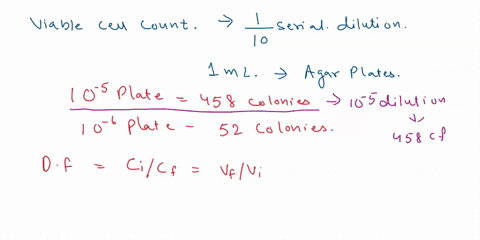 Viable cell count. → 1/10 serial dilution.
1 mL. → Agar Plates.
10⁻⁵ Plate = 458 colonies → 10⁻⁵ dilution
10⁻⁶ Plate - 52 Colonies. ↓ 458 cf
D.f = Ci/Cf = Vf/Vi